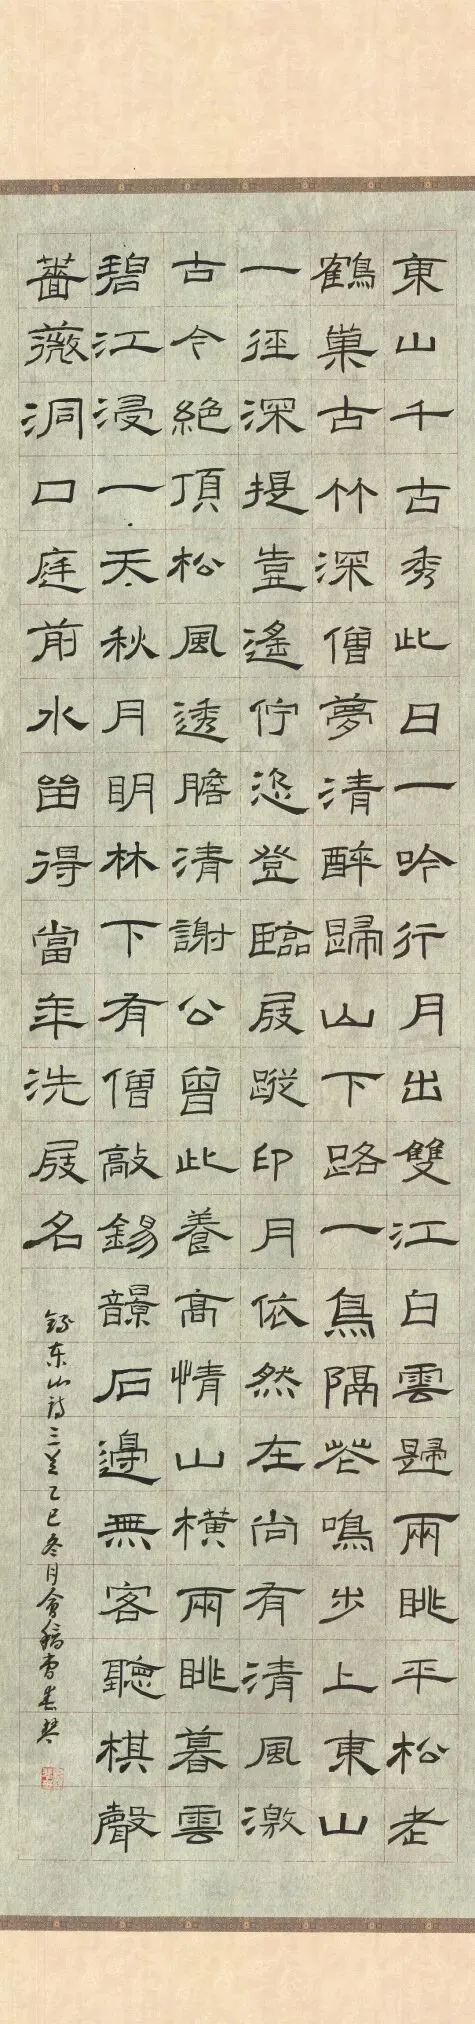 東山千古秀此日一吟行月出雙江白雲歸兩眺平松老
鶴巢古竹深僧夢清醉歸山下路一鳥隔花鳴步上東山
一徑深提壺遙佇恣登臨屐蹤印月依然在尚有清風激
古今絕頂松風透膽清謝公曾此養高情山橫兩眺暮雲
碧江浸一天秋月明林下有僧敲錫韻石邊無客聽棋聲
薔薇洞口庭前水留得當年洗屐名
錄東山詩三首乙巳冬月會稽